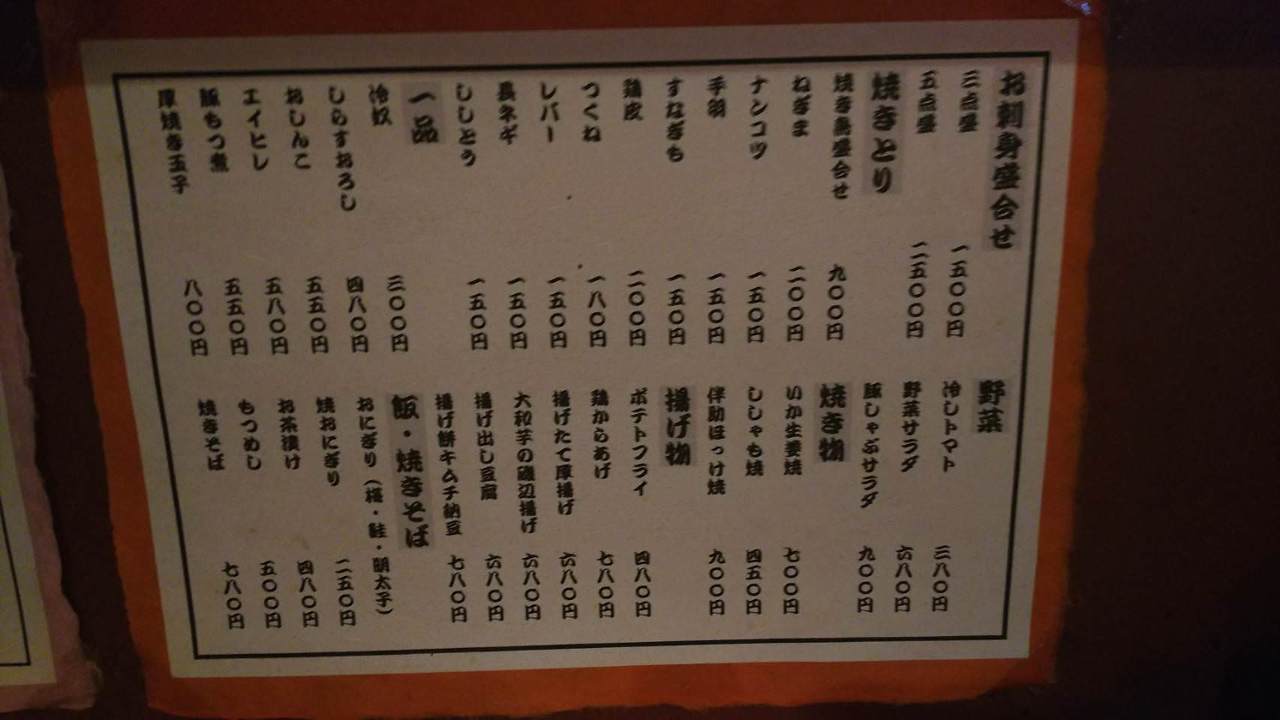 お刺身盛合せ
三点盛 一五〇〇円
五点盛 二五〇〇円
焼きとり
焼き鳥盛合せ 九〇〇円
ねぎま 二〇〇円
ナンコツ 一五〇円
手羽 一五〇円
すなぎも 一五〇円
鶏皮 二〇〇円
つくね 一八〇円
レバー 一五〇円
長ネギ 一五〇円
ししとう 一五〇円
一品
冷奴 三〇〇円
しらすおろし 四八〇円
おしんこ 五五〇円
エイヒレ 五八〇円
豚もつ煮 五五〇円
厚焼き玉子 八〇〇円
野菜
冷しトマト 三八〇円
野菜サラダ 六八〇円
豚しゃぶサラダ 九〇〇円
焼き物
いか生姜焼 七〇〇円
ししゃも焼 四五〇円
伴助ほっけ焼 九〇〇円
揚げ物
ポテトフライ 四八〇円
鶏からあげ 七八〇円
揚げたて厚揚げ 六八〇円
大和芋の磯辺揚げ 六八〇円
揚げ出し豆腐 六八〇円
揚げ餅キムチ納豆 七八〇円
飯・焼きそば
おにぎり（梅・鮭・明太子）
焼おにぎり 二五〇円
お茶漬け 四八〇円
もつめし 五〇〇円
焼きそば 七八〇円